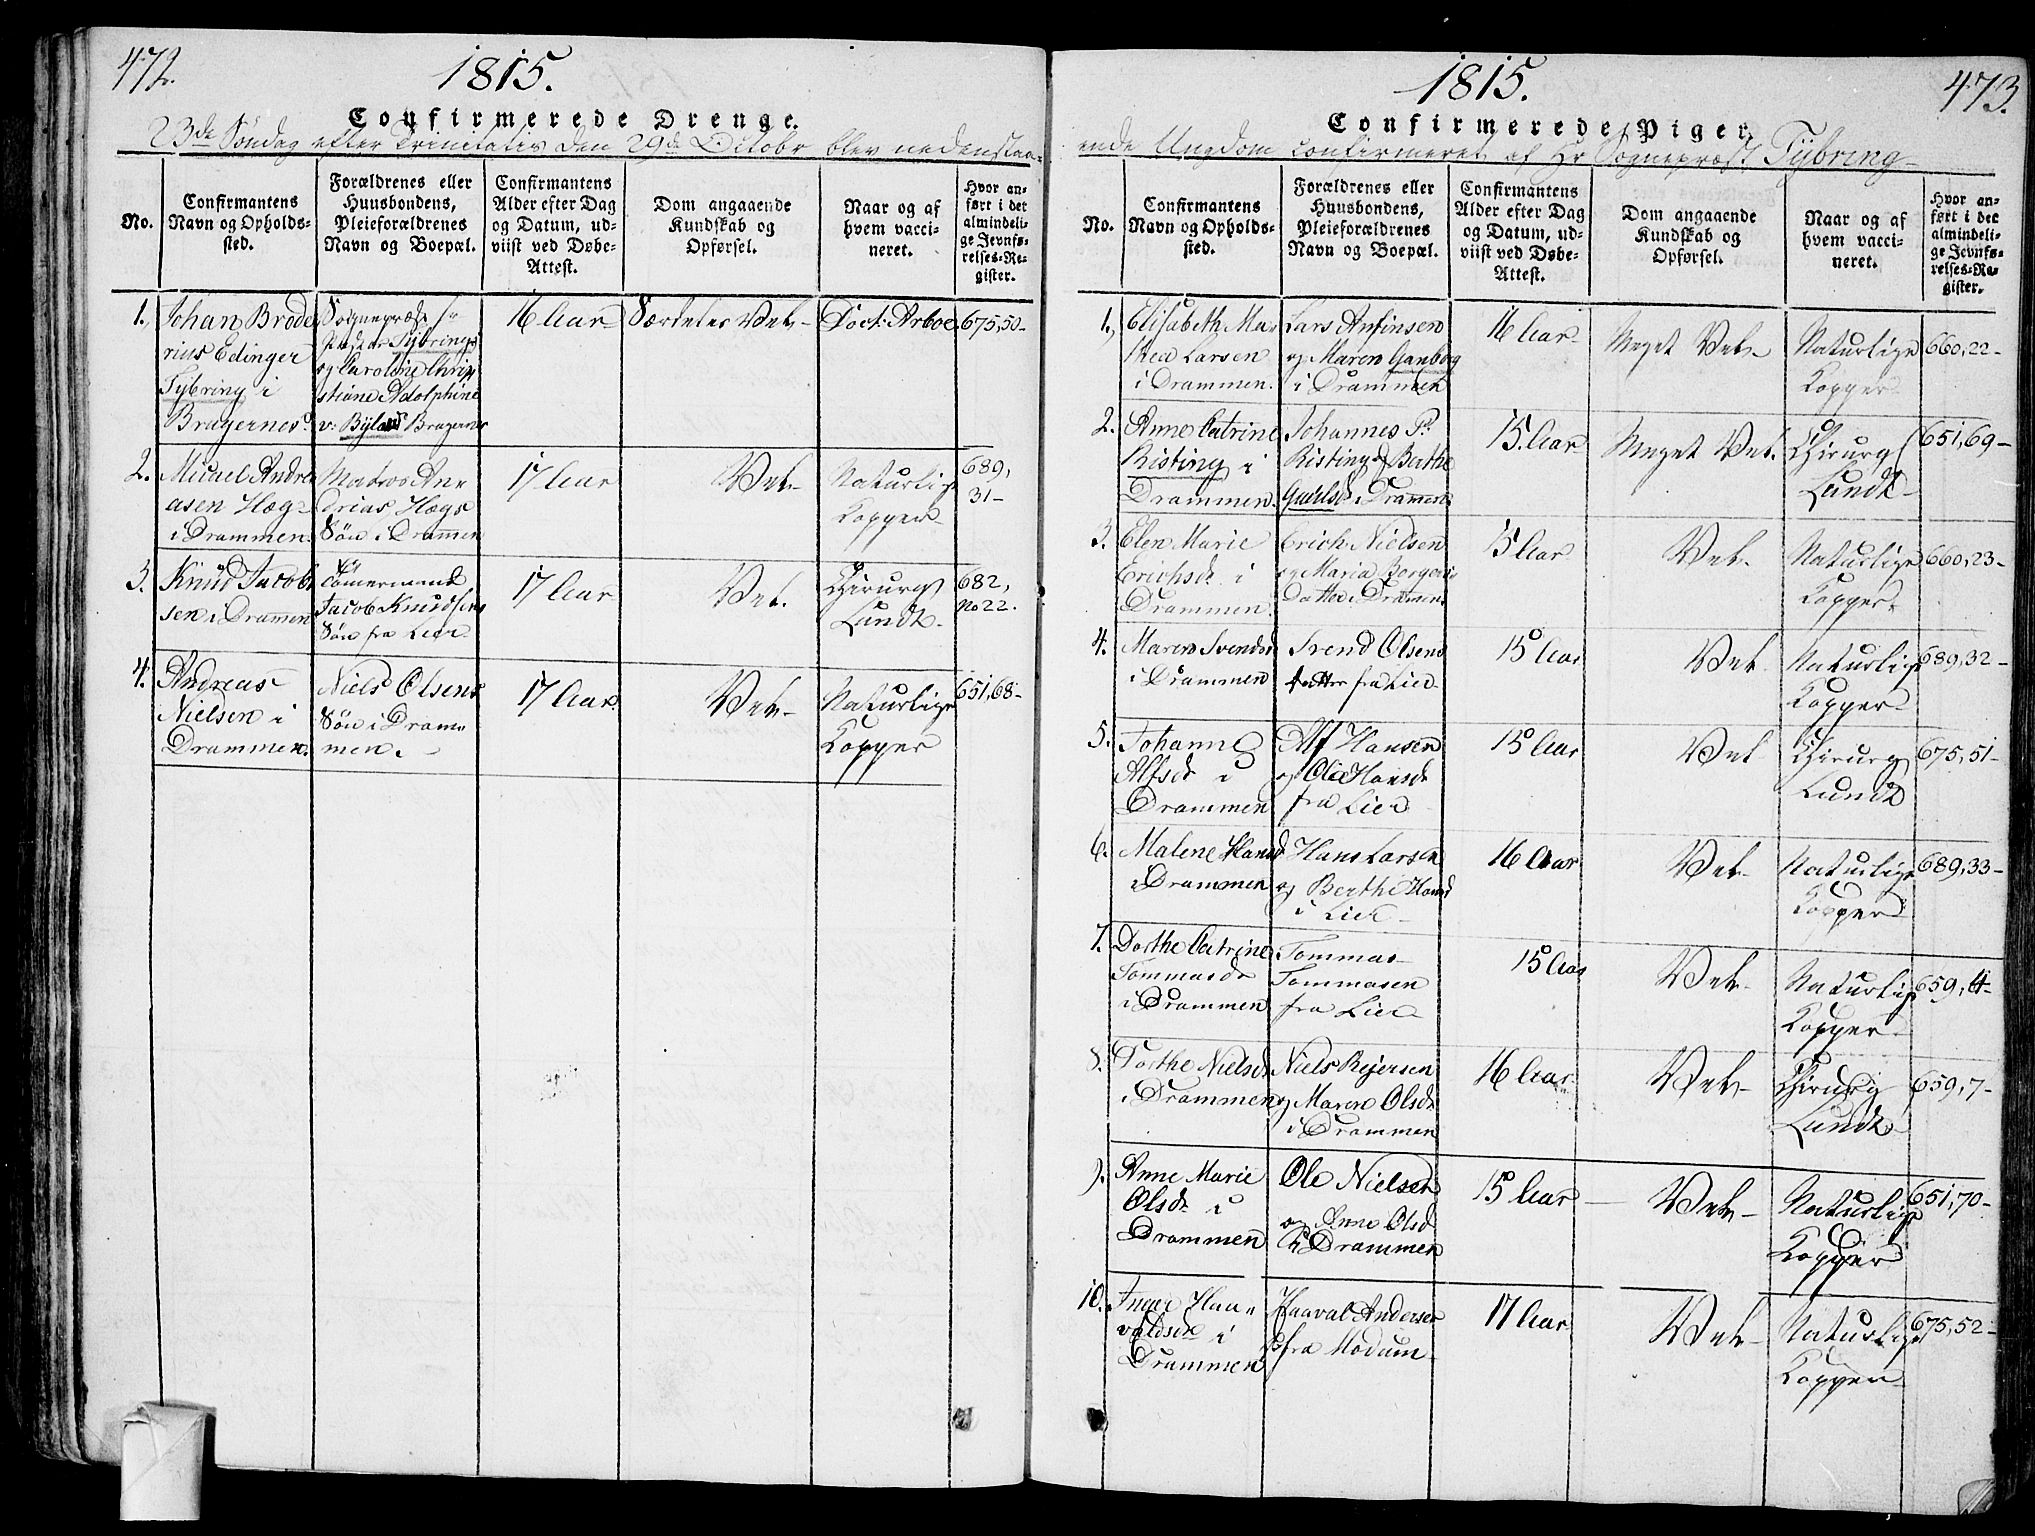 472.
1815.
Confirmerede Drenge.
23de Søndag efter Trinitatis den 29de Octobr blev nedenstaa-
No.
Confirmantens
Navn og Opholds-
sted.
Forældrenes eller
Huusbondens,
Pleieforældrenes
Navn og Boepæl.
Confirmantens
Alder efter Dag
og Datum, ud-
viist ved Døbe-
Attest.
Dom angaaende
Kundskab og
Opførsel.
Naar og af
hvem vacci-
neret.
Hvor an-
ført i det
almindeli-
ge Jevnfø-
relses-Re-
gister.
1.
Johan Brode
rius Edinger
Tybring i
Bragernes
Sognepræst
Tybrings
og Caroline Chri
stiane Adolphine
v: Bylow Bragernes
16 Aar
Særdeles Vel-
Doct: Arboe
675,50-
2.
Micael Andre
asen Høeg
i Drammen.
Matros An-
drias Høegs
Søn i Drammen
17 Aar
Vel-
Naturlige
Kopper-
689,
31-
3.
Knud Jacob
sen i Drammen
Tømermand
Jacob Knudsens
Søn fra Lier
17 Aar
Vel.
Chirurg
Lundt-
682,
No 22.
4.
Andreas
Nielsen i
Drammen.
Niels Olsens
Søn i Dram-
men.
17 Aar.
Vel-
Naturlige
Kopper
651,68-
473.
1815.
Confirmerede Piger.
ende Ungdom confirmeret af Hr Sognepræst Tybring
No.
Confirmantens
Navn og Opholds-
sted.
Forældrenes eller
Huusbondens,
Pleieforældrenes
Navn og Boepæl.
Confirmantens
Alder efter Dag
og Datum, ud-
viist ved Døbe-
Attest.
Dom angaaende
Kundskab og
Opførsel.
Naar og af
hvem vacci-
neret.
Hvor an-
ført i det
almindeli-
ge Jevnfø-
relses-Re-
gister.
1.
Elisabeth Ma-
thea Larsen
i Drammen.
Lars Anfinsen
og Maren Ganborg
i Drammen
16 Aar
Meget Vel-
Naturlige
Kopper
660,22-
2.
Anne Catrine
Risting i
Drammen.
Johannes P.
Risting og Berthe
i Drammen
15. Aar
Meget Vel.
Chirurg
Lundt-
651,69-
3.
Elen Marie
Erichsdr i
Drammen.
Erich Nielsen
og Maria Borger
Datter i Dramen
15 Aar
Vel-
Naturlige
Kopper.
660,23-
4.
Maren Svendsd
i Drammen
Svend Olsens
datter fra Lier
15 Aar
Vel
Naturlige
Kopper
689,32-
5.
Johanne
Alfsdr i
Drammen
Alf Hansen
og Olia Hansdr
fra Lier
15 Aar
Vel
Chirurg
Lundt
675,51-
6.
Malene Hansd
i Drammen
Hans Larsen
og Berthe Hansd
i Lier-
16 Aar
Vel-
Naturlige
Kopper
689,33-
7.
Dorthe Catrine
Tommasdr
i Drammen
Tommas
Tommasen
fra Lier
15 Aar
Vel-
Naturlige
Kopper
659,
8.
Dorthe Nielsdr
i Drammen
Niels Rejersen
og Maren Olsdr
i Drammen
16 Aar
Vel-
Chirurg
Lundt
659,7-
9.
Anne Marie
Olsdr i
Drammen
Ole Nielsen
og Anne Olsd
i Drammen
15 Aar
Vel-
Naturlige
Kopper
651,70-
10.
Inger Haa-
valdsen i
Drammen
Haaval Andersen
fra Modum-
17 Aar
Vel-
Naturlige
Kopper
675,52-